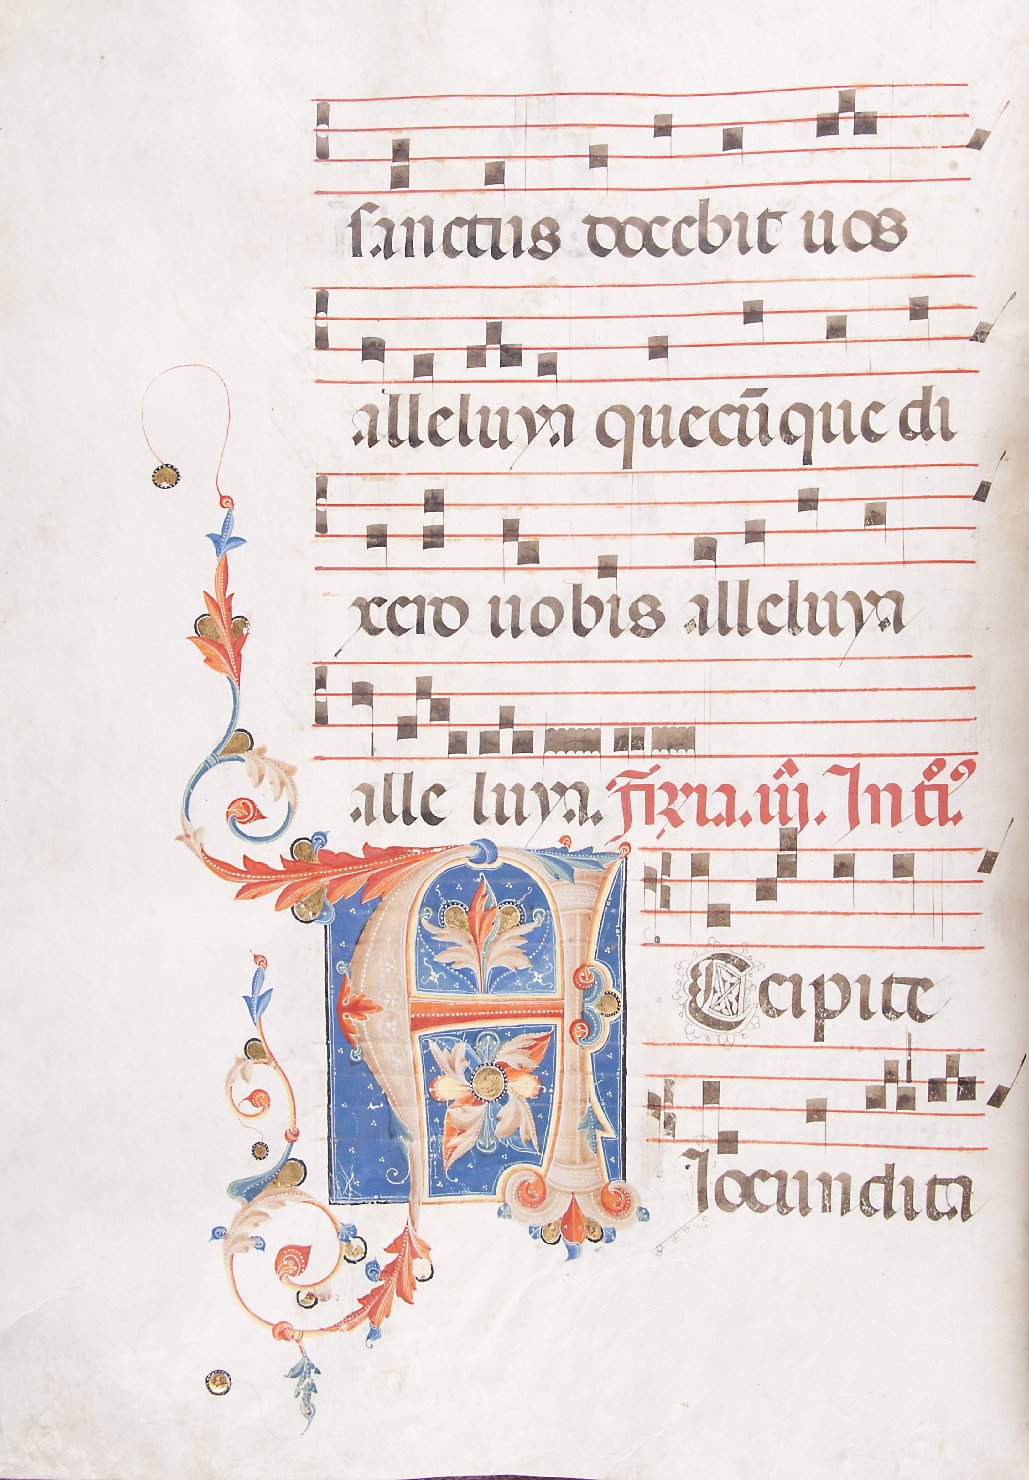 sanctus docebit uos
alleluya quecūque di
xero uobis alleluya
alle luya. Feria. iij. Int͛.
A Ccipite
Iocundita